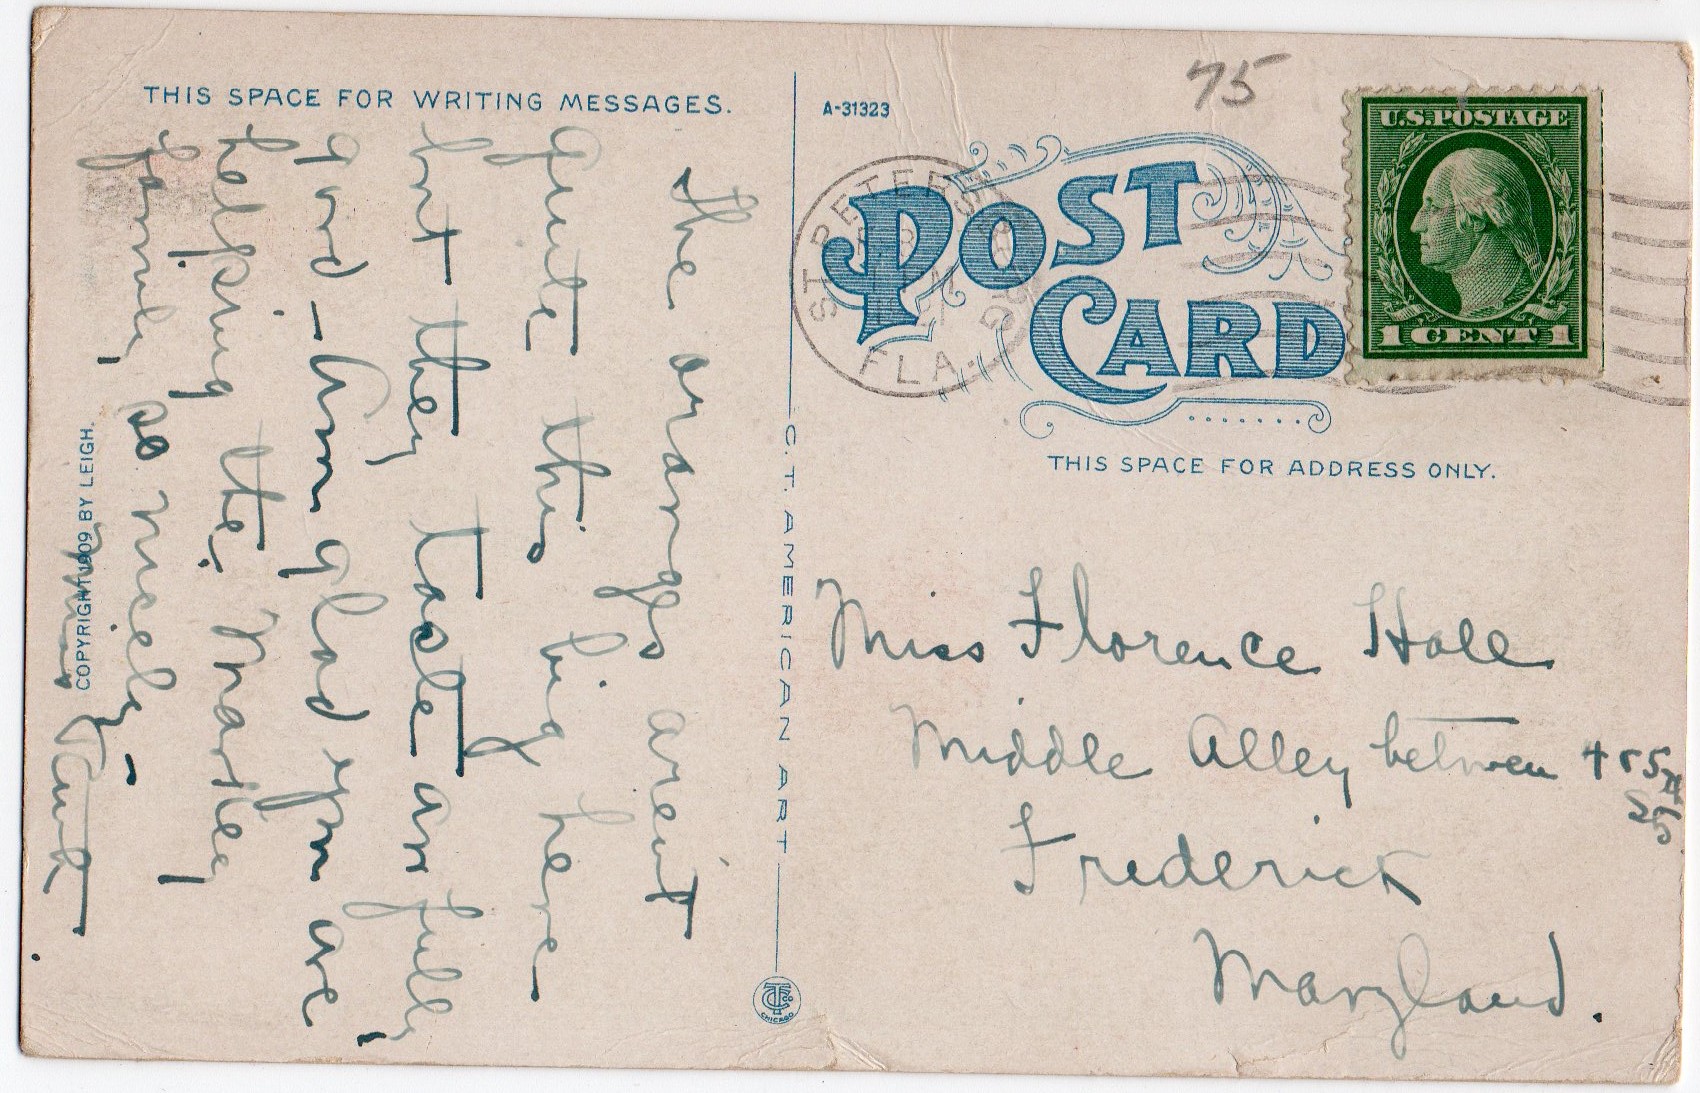 THIS SPACE FOR WRITING MESSAGES.
The oranges arent
quite this big here
but they taste awfully
good – Am glad you are
helping the Martey
family so nicely –
Miss Rauk
COPYRIGHT 1909 BY LEIGH.
C. T. AMERICAN ART
CTCo
CHICAGO
A-31323
75
U.S. POSTAGE
1 CENT 1
ST. PETERSBURG
FLA.
POST
CARD
THIS SPACE FOR ADDRESS ONLY.
Miss Florence Hall
Middle Alley between 4 + 5th
Sts.
Frederick
Maryland.